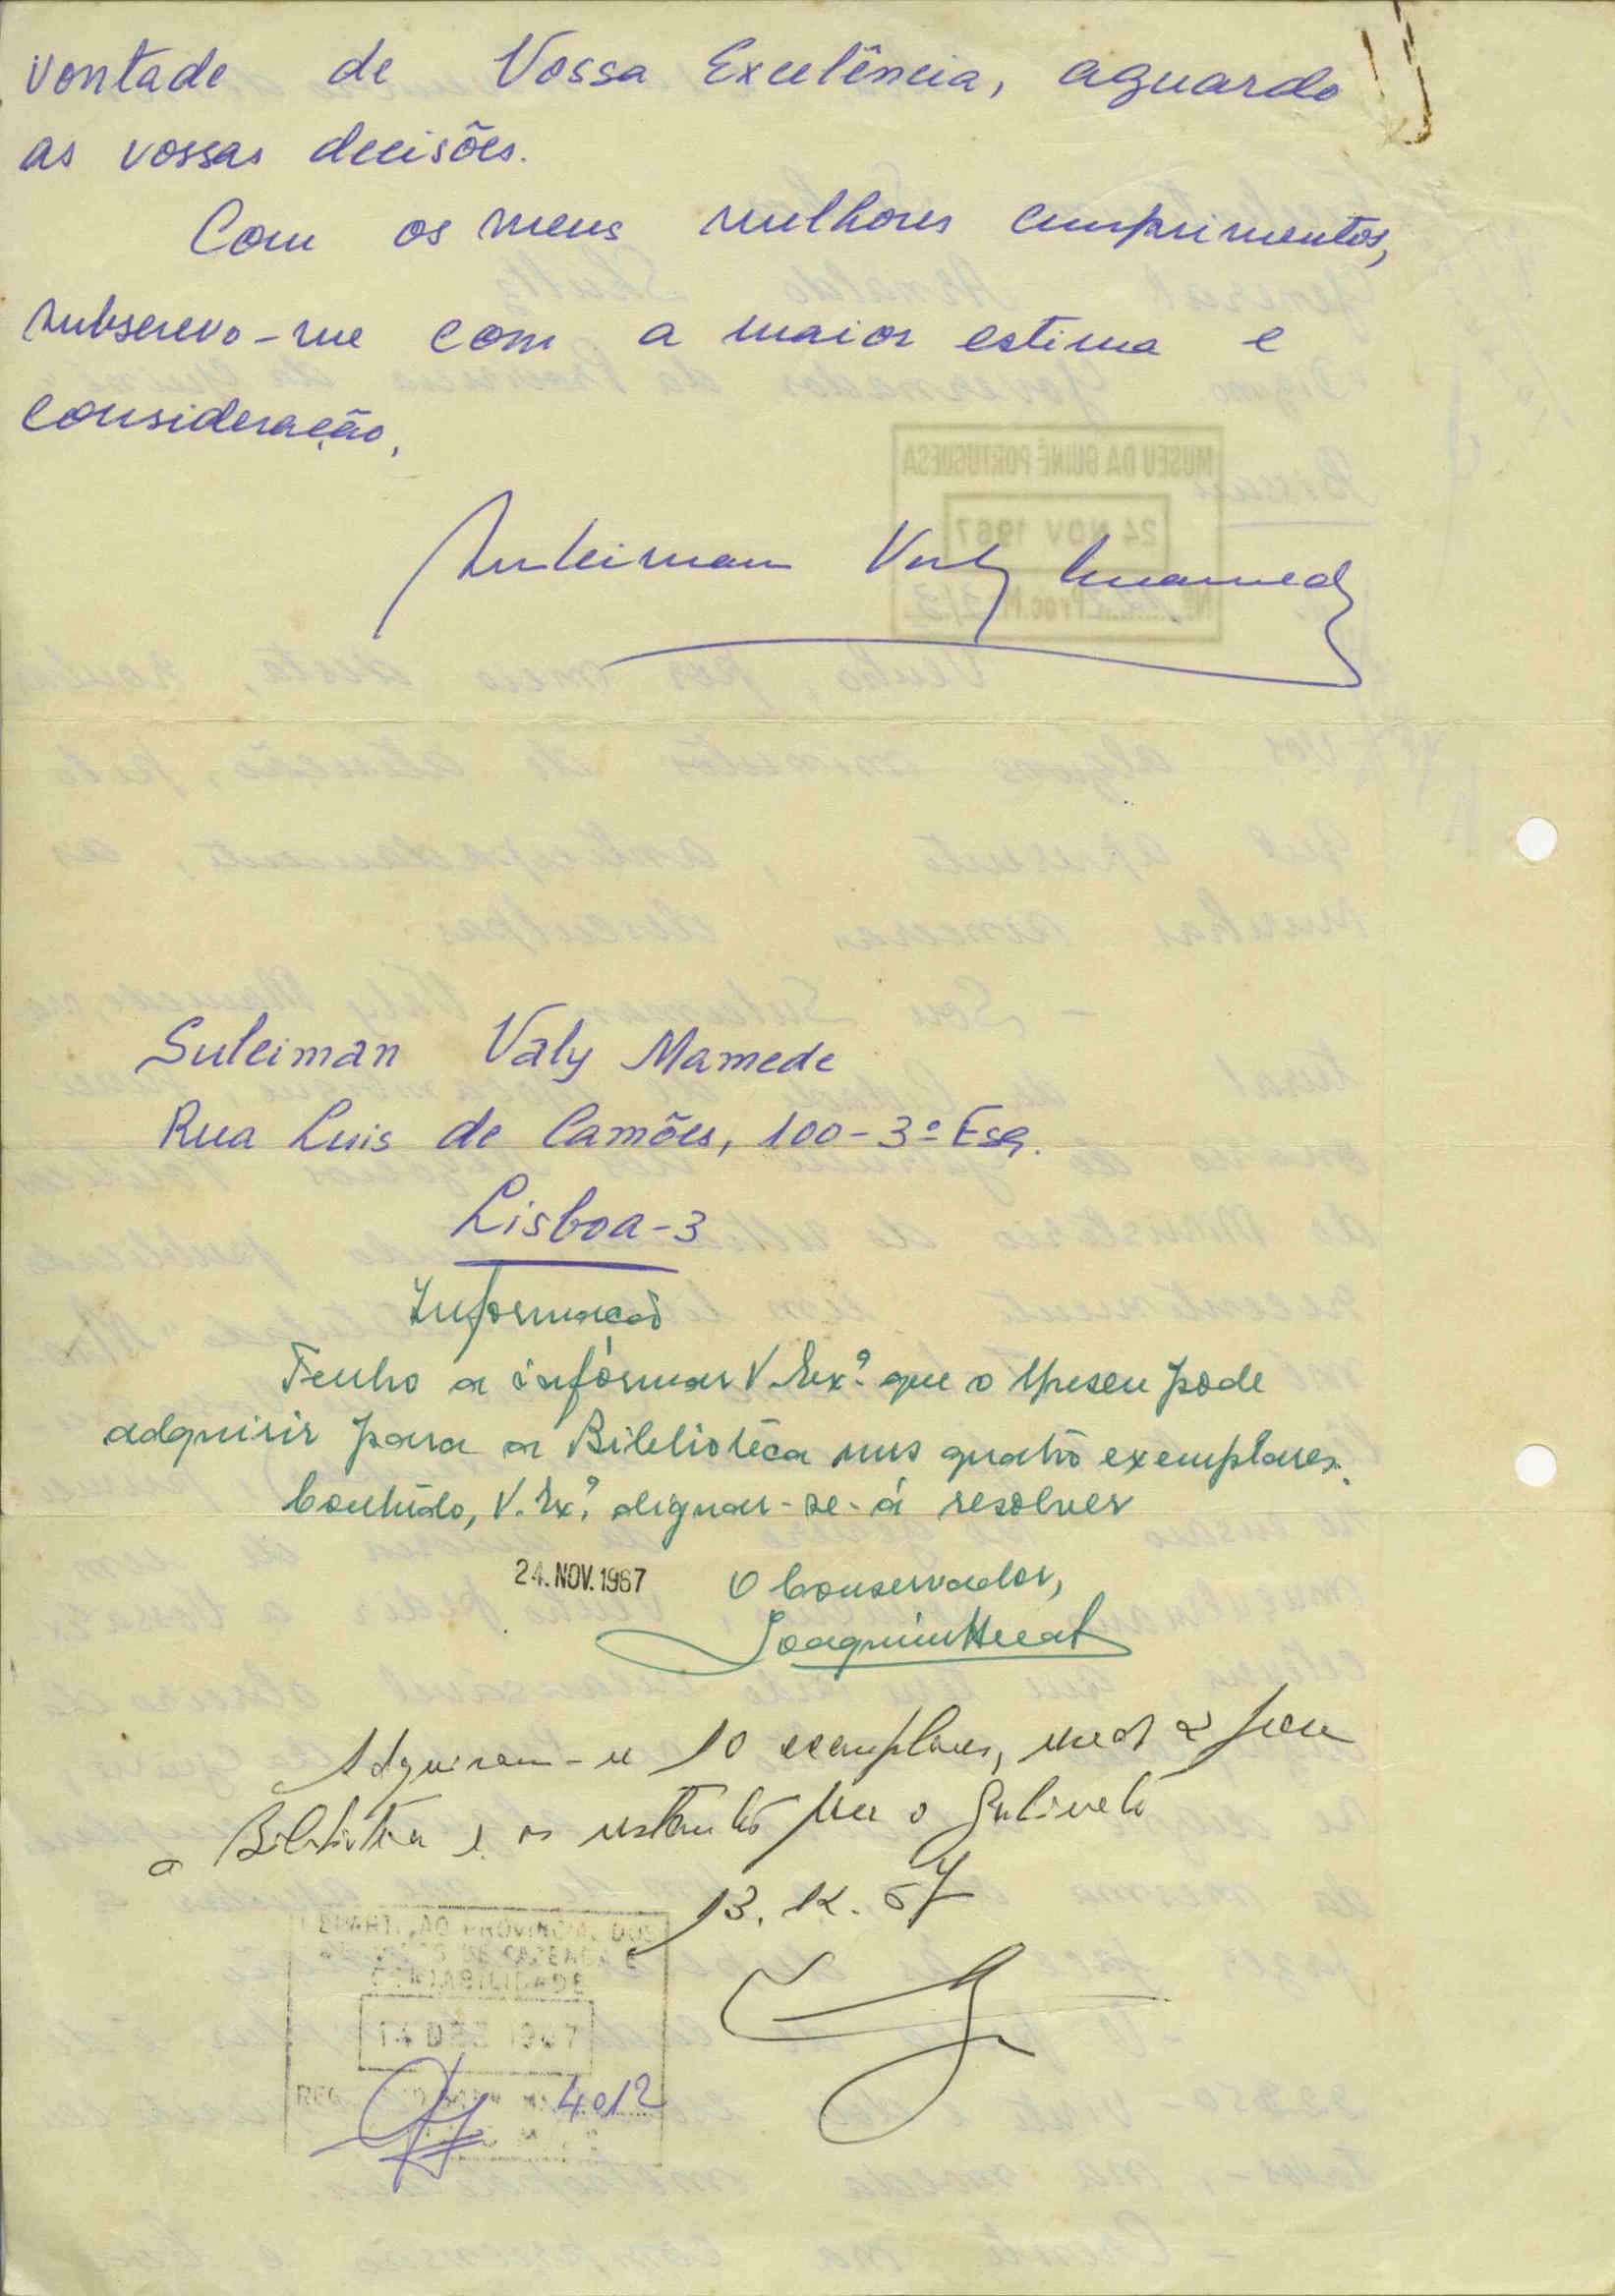 vontade de Vossa Excelência, aguardo
as vossas decisões.
Com os meus melhores cumprimentos,
subscrevo-me com a maior estima e
consideração,
Suleiman Valy Mamede
Suleiman Valy Mamede
Rua Luis de Camões, 100-3º Esq.
Lisboa-3
Informação
Tenho a informar V. Exª. que o Museu pode
adquirir para a Biblioteca uns quatro exemplares.
Contudo, V. Exª. dignar-se-á resolver
24.NOV.1967 O Conservador,
Joaquim
Adquiram-se 10 exemplares, 2 para
a Biblioteca e os restantes para o Gabinete
13.12.67
CONTABILIDADE
14 DEZ 1967
4012